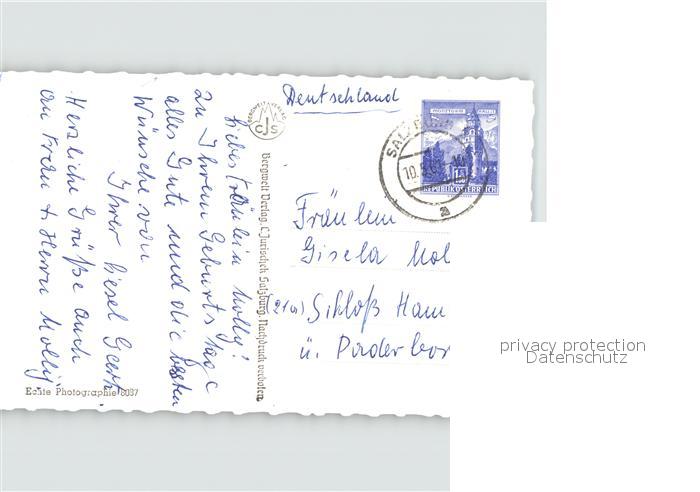 Liebes Fräulein Molly!
Zu Ihrem Geburtstage
alles Gute und die besten
Wünsche von
Ihrer Liesel
Herzliche Grüße auch
an Frau & Herrn Molly
Echte Photographie 8087
Bergwelt Verlag, C. Jurischek Salzburg. Nachdruck verboten.
BERGWELT VERLAG
CJS
Deutschland
REPUBLIK ÖSTERREICH
SALZBURG
2
Fräulein
Gisela Mol
(21a) Schloß Ham
ü. Paderbor
privacy protection
Datenschutz